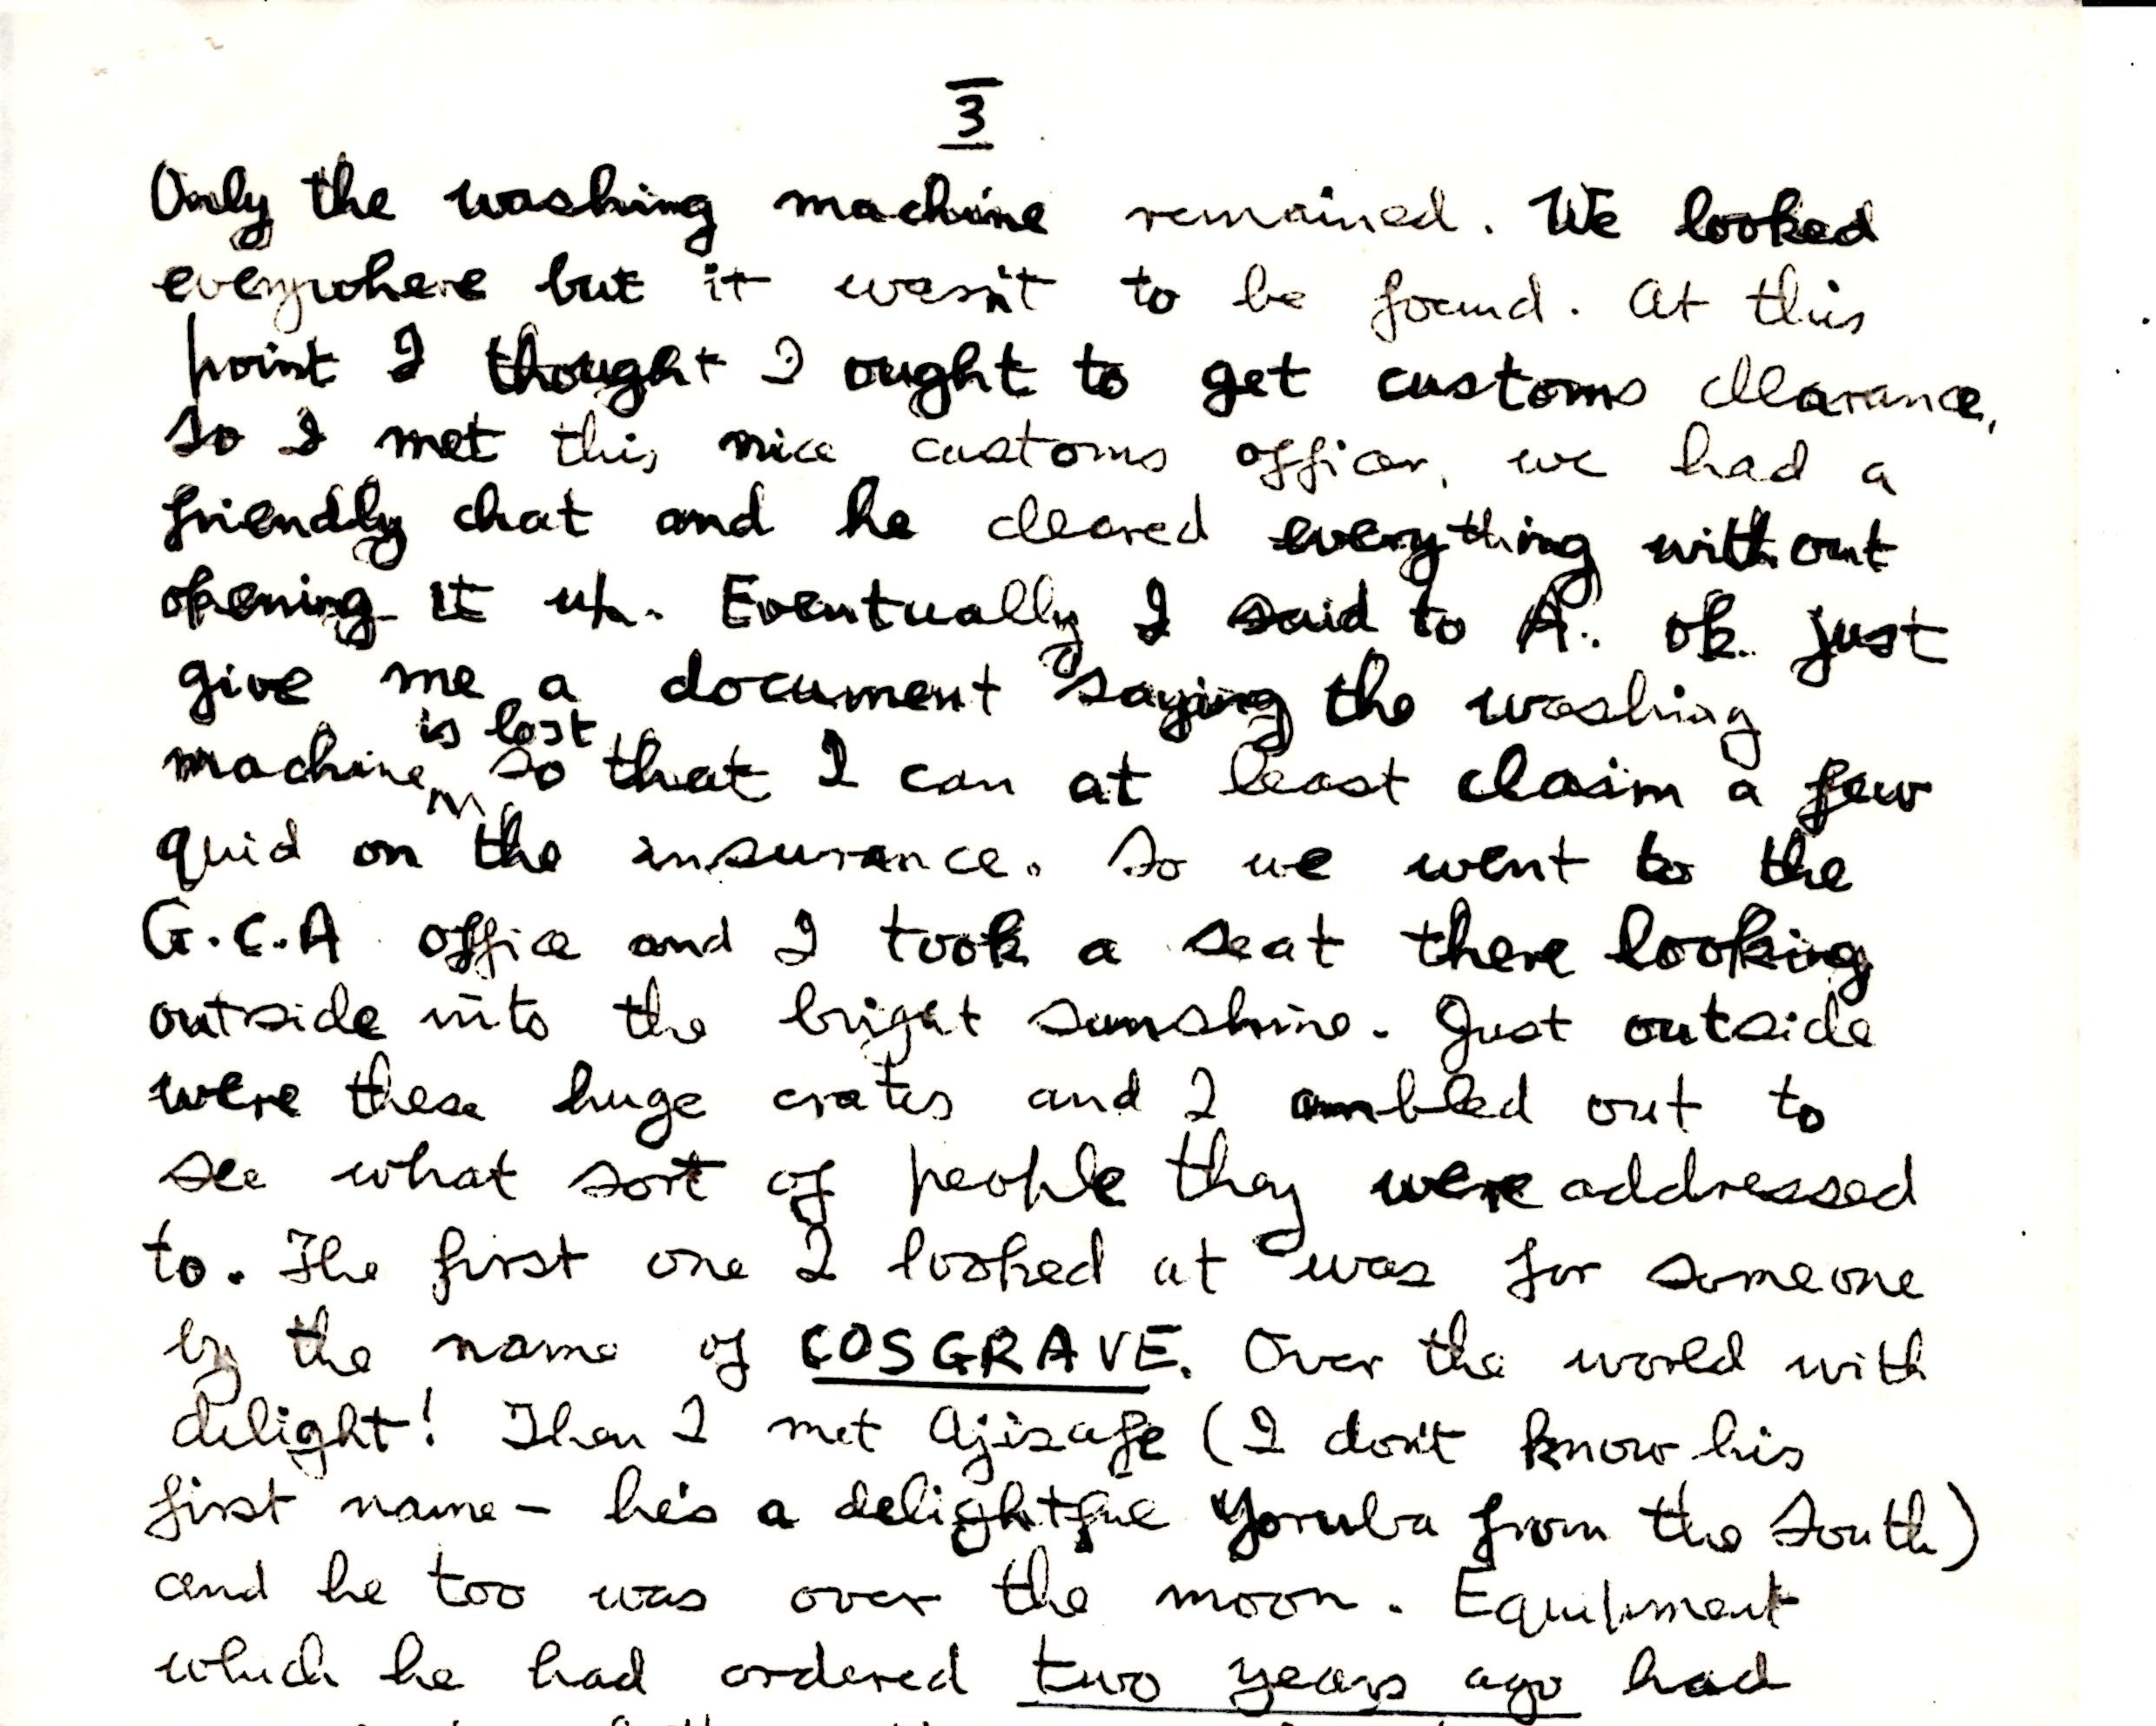 3
Only the washing machine remained. We looked
everywhere but it wasn't to be found. At this
point I thought I ought to get customs clearance,
so I met this nice customs officer, we had a
friendly chat and he cleared everything without
opening it up. Eventually I said to A. ok just
give me a document saying the washing
is lost
machine, so that I can at least claim a few
quid on the insurance. So we went to the
G.C.A office and I took a seat there looking
outside into the bright sunshine. Just outside
were these huge crates and I ambled out to
see what sort of people they were addressed
to. The first one I looked at was for someone
by the name of COSGRAVE. Over the world with
delight! Then I met Ajisafe (I don't know his
first name – he's a delightful Yoruba from the South)
and he too was over the moon. Equipment
which he had ordered two years ago had